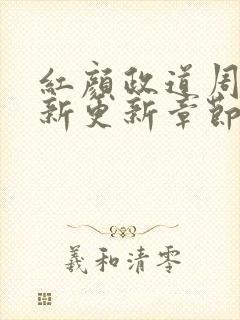 紅顏政道周
新更新章節
羲和清零